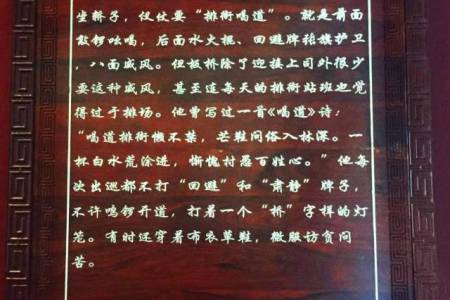 坐轿子，仪仗要“排衙喝道”。就是前面
敲锣吆喝，后面水火棍、回避牌、旌旗护卫
，八面威风。但板桥除了迎接上司外很少
耍这种威风，甚至连每天的排衙站班也觉
得过于排场。他曾写过一首《喝道》诗：
“喝道排衙懒不禁，芒鞋问俗入林深。一
杯白水荒涂进，惭愧村愚百姓心。”他每
次出巡都不打“回避”和“肃静”牌子，
不许鸣锣开道，打着一个“桥”字样的灯
笼。有时还穿着布衣草鞋，微服访贫问
苦。